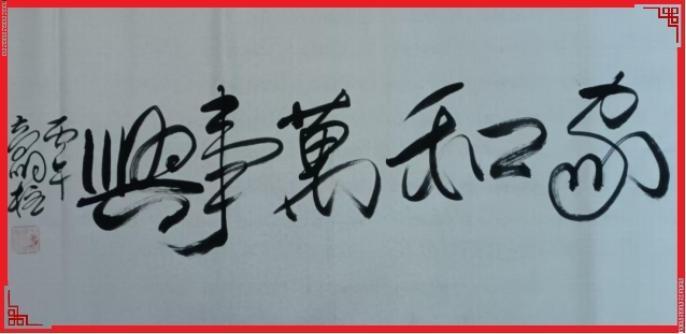 家和萬事興
丙午
高明柱